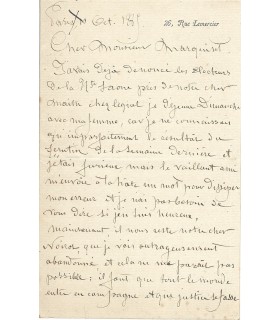 Paris Oct. 188
26, Rue Lemercier
Cher Monsieur Marquiset
J'avais déjà dénoncé les électeurs
de la Hte Saône près de notre cher
maître chez lequel je déjeune Dimanche
avec ma femme, car je ne connaissais
qu'imparfaitement le résultat du
scrutin de la semaine dernière et
j'étais furieux mais le vaillant ami
m'envoie à la hâte un mot pour dissiper
mon erreur et je n'ai pas besoin de
vous dire si j'en suis heureux,
maintenant, il nous reste notre cher
que je vois outrageusement
abandonné et cela ne me paraît pas
possible : il faut que tout le monde
entre en campagne et que justice se fasse